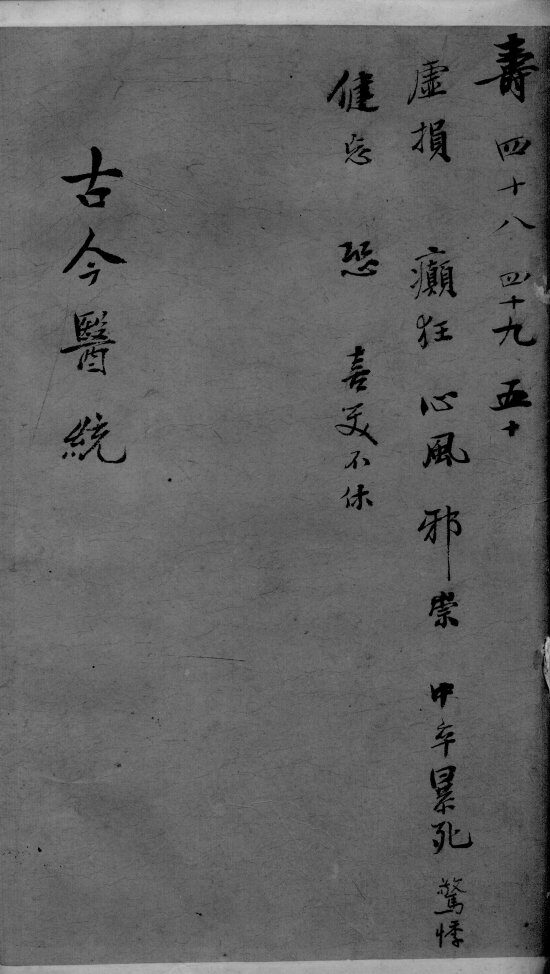 壽 四十八 四十九 五十
虛損 癲狂 心風 邪祟 中卒暴死 驚悸
健忘 恐 喜笑不休
古今醫統